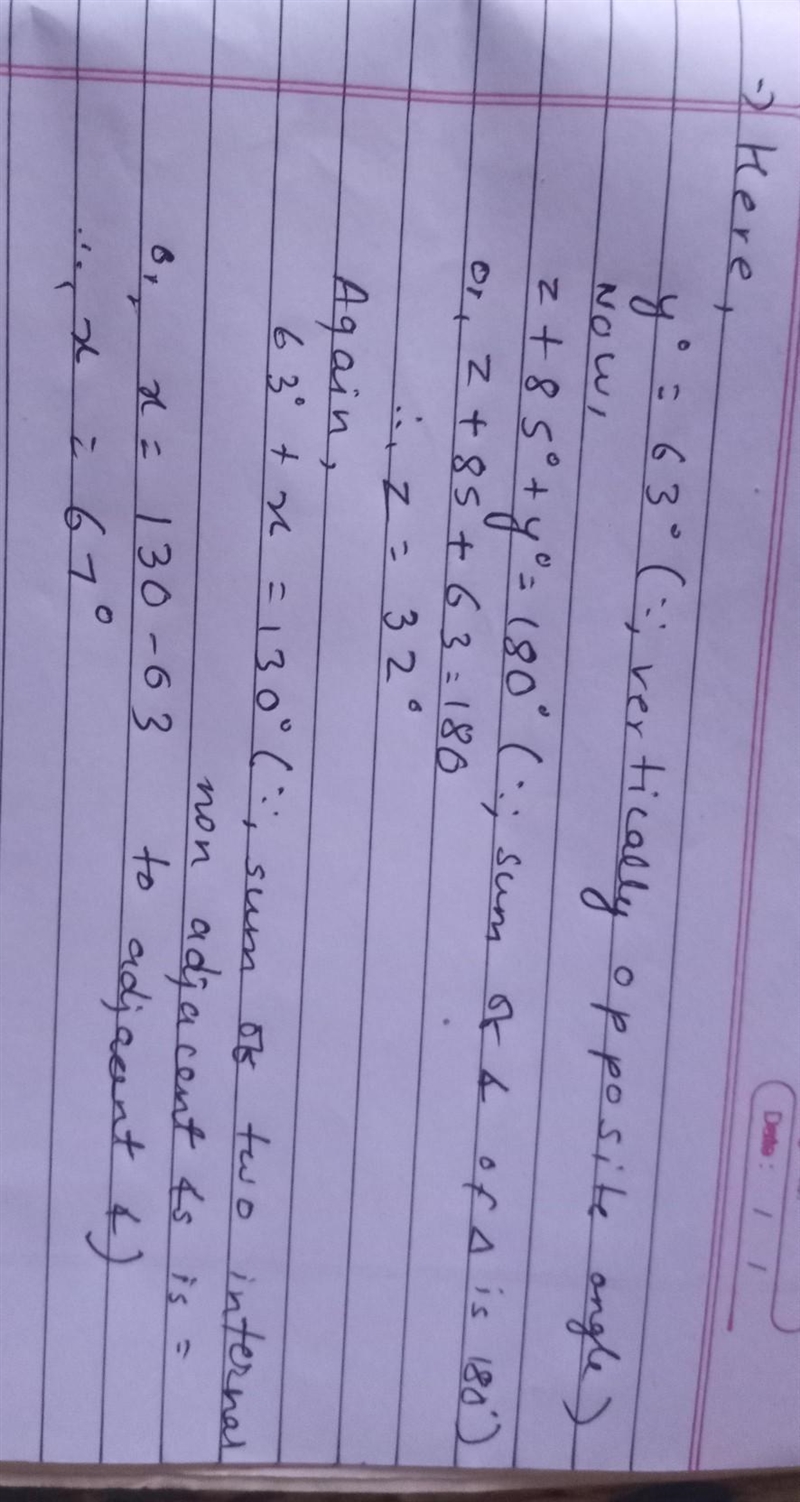 Date: / /
→ Here,
y° = 63° (∵, vertically opposite angle)
Now,
z + 85° + y° = 180° (∵, sum of ∠ of Δ is 180°)
or, z + 85 + 63 = 180
∴, z = 32°
Again,
63° + x = 130° (∵, sum of two internal
non adjacent ∠s is =
or, x = 130 - 63 to adjacent ∠)
∴, x = 67°